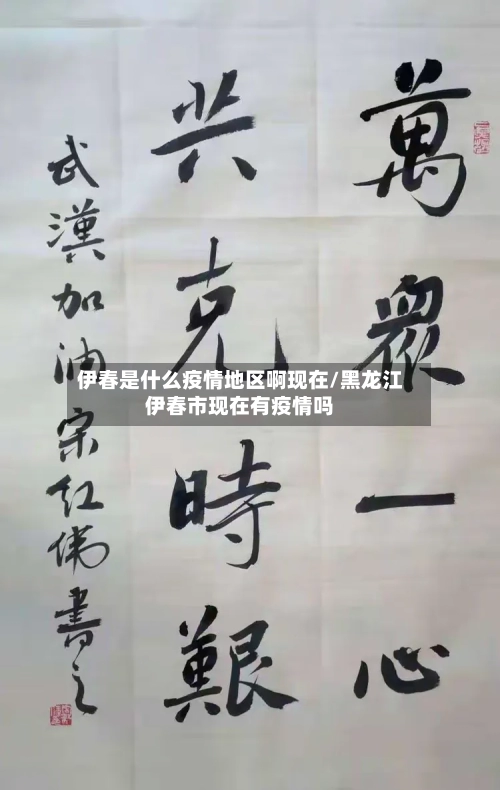 萬眾一心
共克時艱
武漢加油宋红偉書之
伊春是什么疫情地区啊现在/黑龙江
伊春市现在有疫情吗